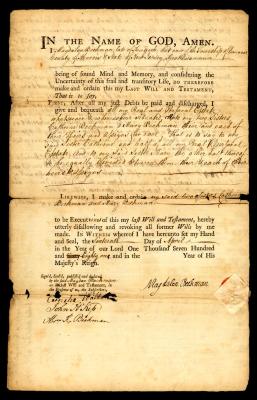 IN THE NAME OF GOD, AMEN.
I Magdalen Beekman late of but now of
County of and State of New Jersey
being of sound Mind and Memory, and considering the
Uncertainty of this frail and transitory Life, do THEREFORE
make and ordain this my LAST WILL AND TESTAMENT,
That is to say,
FIRST, After all my just Debts be paid and discharged, I
give and bequeath all my Real and Personal Estate
whatsoever & wheresoever situated, unto my two Sisters
Catherine Beekman & Mary Beekman them and each of
their Heirs and assigns for ever, That is to say to my
said Sister Catherine one half of all my Real & Personal
Estate, And to my said Sister Mary the other half thereof
to be equally divided between them, their & each of their
heirs & assigns
LIKEWISE, I make and ordain my said two Sisters Catherine
Beekman and Mary Beekman
to be Executors of this my last Will and Testament, hereby
utterly disallowing and revoking all former Wills by me
made. IN WITNESS whereof I have hereunto set my Hand
and Seal, the Day of April
in the Year of our Lord One Thousand Seven Hundred
and eighty one and in the Year of His
Majesty's Reign.
Sign'd, Seal'd, publish'd and declared
by the said
as last Will and Testament,
in the Presence of us, the Subscribers,
Magdalen Beekman
John H. Kip
Abm. K. Beekman